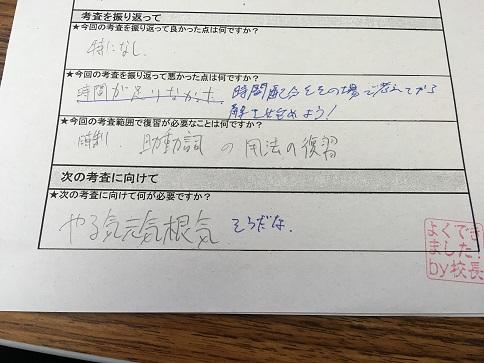 考査を振り返って
★今回の考査を振り返って良かった点は何ですか?
特になし.
★今回の考査を振り返って悪かった点は何ですか?
時間が足りなかった 時間配分をその場で考えてから
解き始めよう!
★今回の考査範囲で復習が必要なことは何ですか?
助動詞の用法の復習
次の考査に向けて
★次の考査に向けて何が必要ですか?
やる気元気根気 そうだな.
よくでき
ました!
by校長